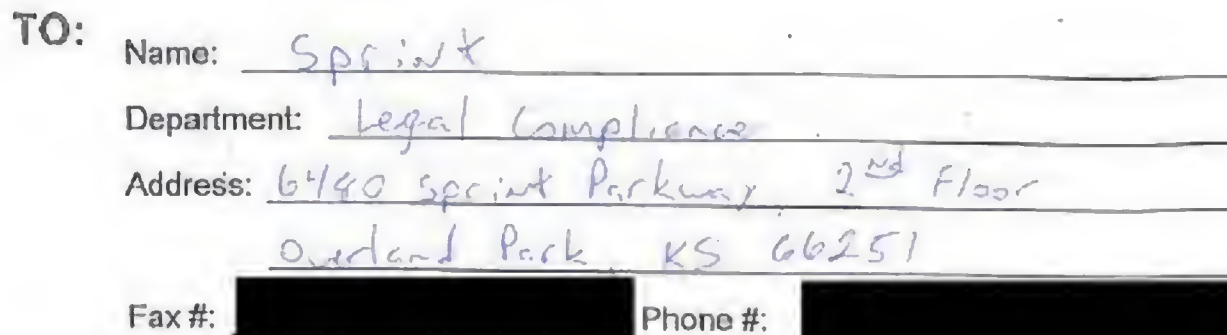 TO:
Name: Sprint
Department: Legal Compliance
Address: 6480 Sprint Parkway 2nd Floor
Overland Park KS 66251
Fax #: Phone #: